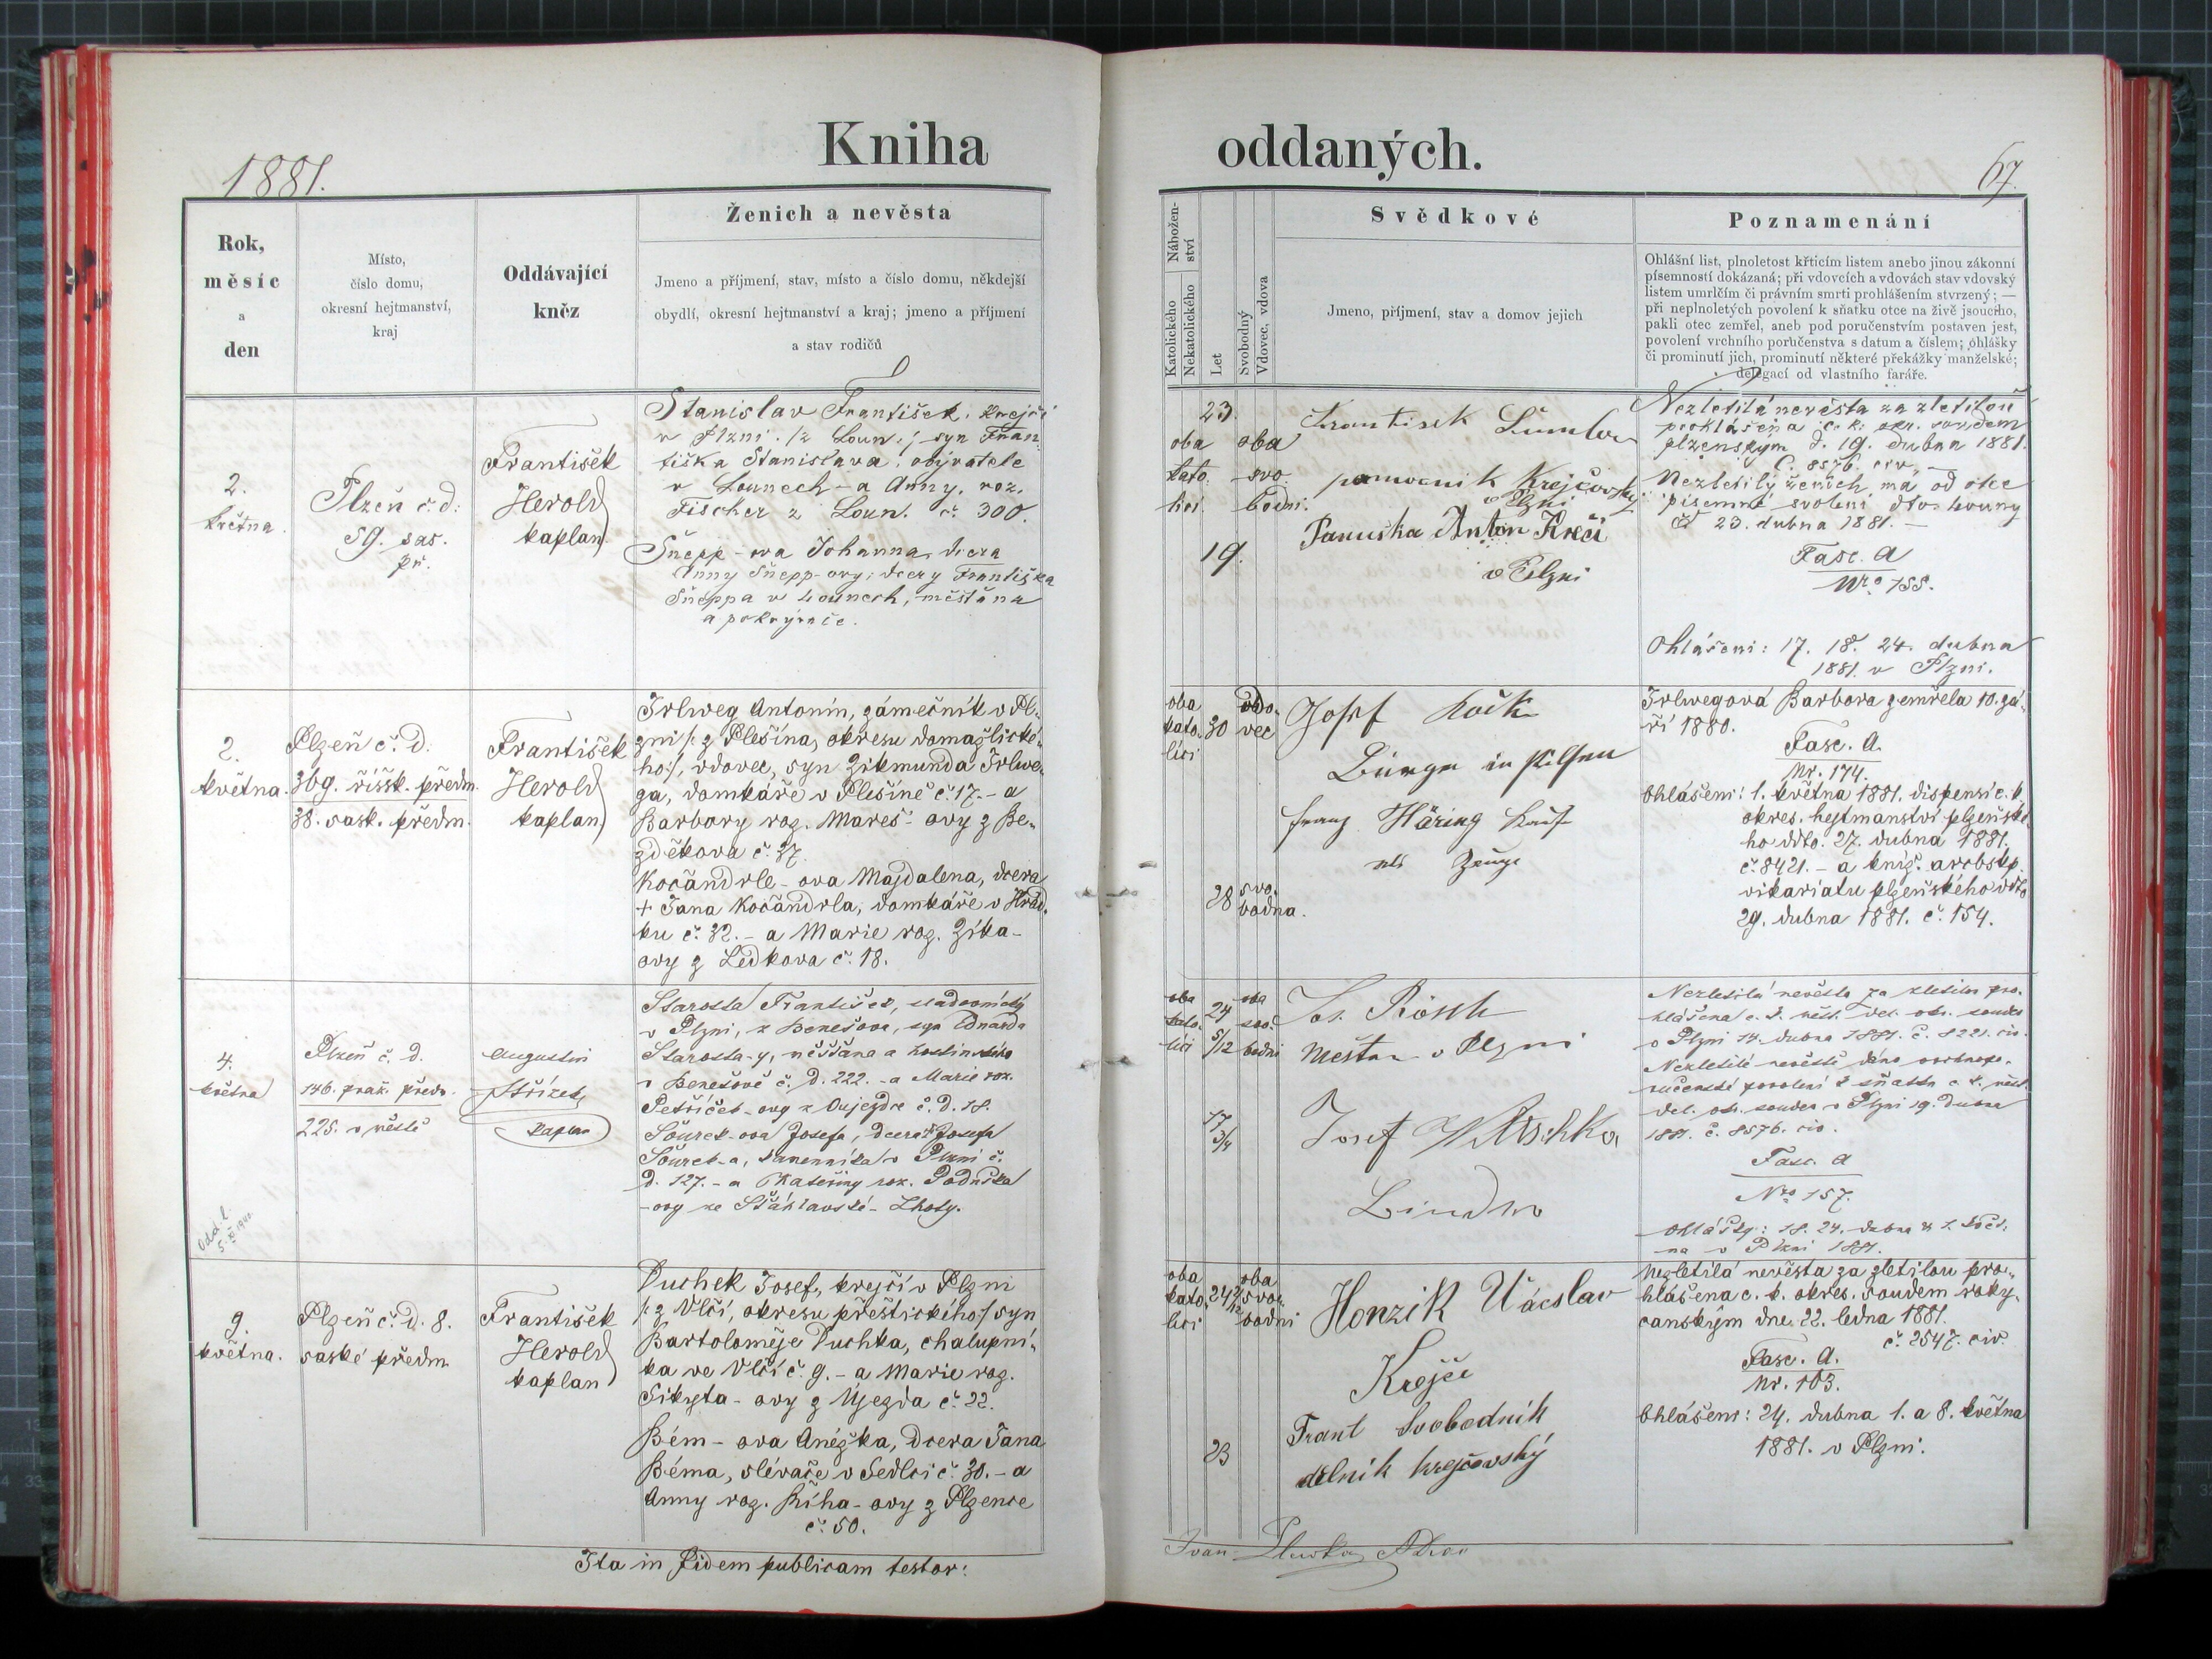 Kniha oddaných.
1881.
67.
Rok,
měsíc
a
den
Místo,
číslo domu,
okresní hejtmanství,
kraj
Oddávající
kněz
Ženich a nevěsta
Jmeno a příjmení, stav, místo a číslo domu, někdejší
obydlí, okresní hejtmanství a kraj; jmeno a příjmení
a stav rodičů
Nábožen-
ství
Katolického
Nekatolického
Let
Svobodný
Vdovec, vdova
Svědkové
Jmeno, příjmení, stav a domov jejich
Poznamenání
Ohlášní list, plnoletost křticím listem anebo jinou zákonní
písemností dokázaná; při vdovcích a vdovách stav vdovský
listem umrlčím či právním smrti prohlášením stvrzený; —
při neplnoletých povolení k sňatku otce na živě jsoucího,
pakli otec zemřel, aneb pod poručenstvím postaven jest,
povolení vrchního poručenstva s datum a číslem; ohlášky
či prominutí jich, prominutí některé překážky manželské;
delegací od vlastního faráře.
2.
května.
Plzeň č. d.
59. sas.
př.
František
Herold
kaplan
Stanislav František, krejčí
v Plzni /z Loun/, syn Fran-
tiška Stanislava, obyvatele
v Lounech - a Anny, roz.
Fischer z Loun. č. 300.
Šnepp-ova Johanna, dcera
Anny Šnepp-ovy, dcery Františka
Šneppa v Lounech, měšťana
a pokrývače.
23.
oba
kato-
líci.
oba
svo-
bodni.
19.
Frantisek
pomocnik Krejčovsky
v Plzni
Panuska Anton Krečí
v Plzni
Nezletilá nevěsta za zletilou
prohlášena c. k. okr. soudem
plzenským d. 19. dubna 1881.
č. 8576. civ.
Nezletilý ženich má od otce
písemné svolení dto. Louny
23. dubna 1881. -
Fasc. A
Nro 155.
Ohlášení: 17. 18. 24. dubna
1881. v Plzni.
2.
května.
Plzeň č. d.
369. říšsk. předm.
38. sask. předm.
František
Herold
kaplan
Irlweg Antonín, zámečník v Pl-
zni /: z Plešina, okresu domažlické-
ho:/, vdovec, syn Zikmunda Irlwe-
ga, domkáře v Plešině č. 17. - a
Barbory roz. Mareš-ovy z Be-
zděkova č. 37.
Kočandrle-ova Majdalena, dcera
+ Jana Kočandrla, domkáře v Hrád-
ku č. 32. - a Marie roz. Zíka-
ovy z Ledkova č. 18.
oba
kato-
líci
30
vdo-
vec
28
svo-
bodna.
Josef Kočk
Bürger in Pilsen
Franz Häring
als Zeuge
Irlwegová Barbora zemřela 10. zá-
ří 1880.
Fasc. A.
Nr. 174.
Ohlášení: 1. května 1881. dispensí c. k.
okres. hejtmanství plzeňské-
ho ddto. 27. dubna 1881.
č. 8421. - a kníž. arcibskp.
vikariatu plzeňského ddto
29. dubna 1881. č. 154.
4.
května
Plzeň č. d.
146. praž. předm.
225. v městě
Augustin
Střízek
kaplan
Starosta František,
v Plzni, z Benešova, syn Eduarda
Starosta-y, měšťana a hostinského
v Benešově č. d. 222. - a Marie roz.
Petříček-ovy z Oujezdce č. d. 18.
Šourek-ova Josefa, dcera + Josefa
Šourek-a, kameníka v Plzni č.
d. 127. - a Kateřiny roz. Podruška
-ovy ze Šťáhlavské-Lhoty.
Odd. l.
5. XI 1940.
oba
kato-
líci
24
5/12
oba
svo-
bodni
17
3/4
Jos. Rösch
Měštan v Plzni
Josef
Nezletilá nevěsta za zletilou pro-
hlášena c. k. měst. del. okr. soudem
v Plzni 14. dubna 1881. č. 8221. civ.
Nezletilé nevěstě dáno
ručenské povolení k sňatku c. k. měst.
del. okr. soudem v Plzni 19. dubna
1881. č. 8576. civ.
Fasc. A
Nro 157.
Ohlášky: 18. 24. dubna a 1. květ-
na v Plzni 1881.
9.
května.
Plzeň č. d. 8.
saské předm.
František
Herold
kaplan
Duchek Josef, krejčí v Plzni
/: z Vlčí, okresu přeštického:/ syn
Bartoloměje Duchka, chalupní-
ka ve Vlčí č. 9. - a Marie roz.
Sikyta-ovy z Újezda č. 22.
Bém-ova Anéžka, dcera Jana
Béma, slévače v Sedlci č. 30. - a
Anny roz. Říha-ovy z Plzence
č. 50.
oba
kato-
líci
24
oba
svo-
bodni
23
Honzik Wácslav
Krejče
Frant Svobodník
dělník krejčovský
Nezletilá nevěsta za zletilou pro-
hlášena c. k. okres. soudem roky-
canským dne 22. ledna 1881.
č. 2547. civ.
Fasc. A.
Nr. 103.
Ohlášení: 24. dubna 1. a 8. května
1881. v Plzni.
Ita in fidem publicam testor: